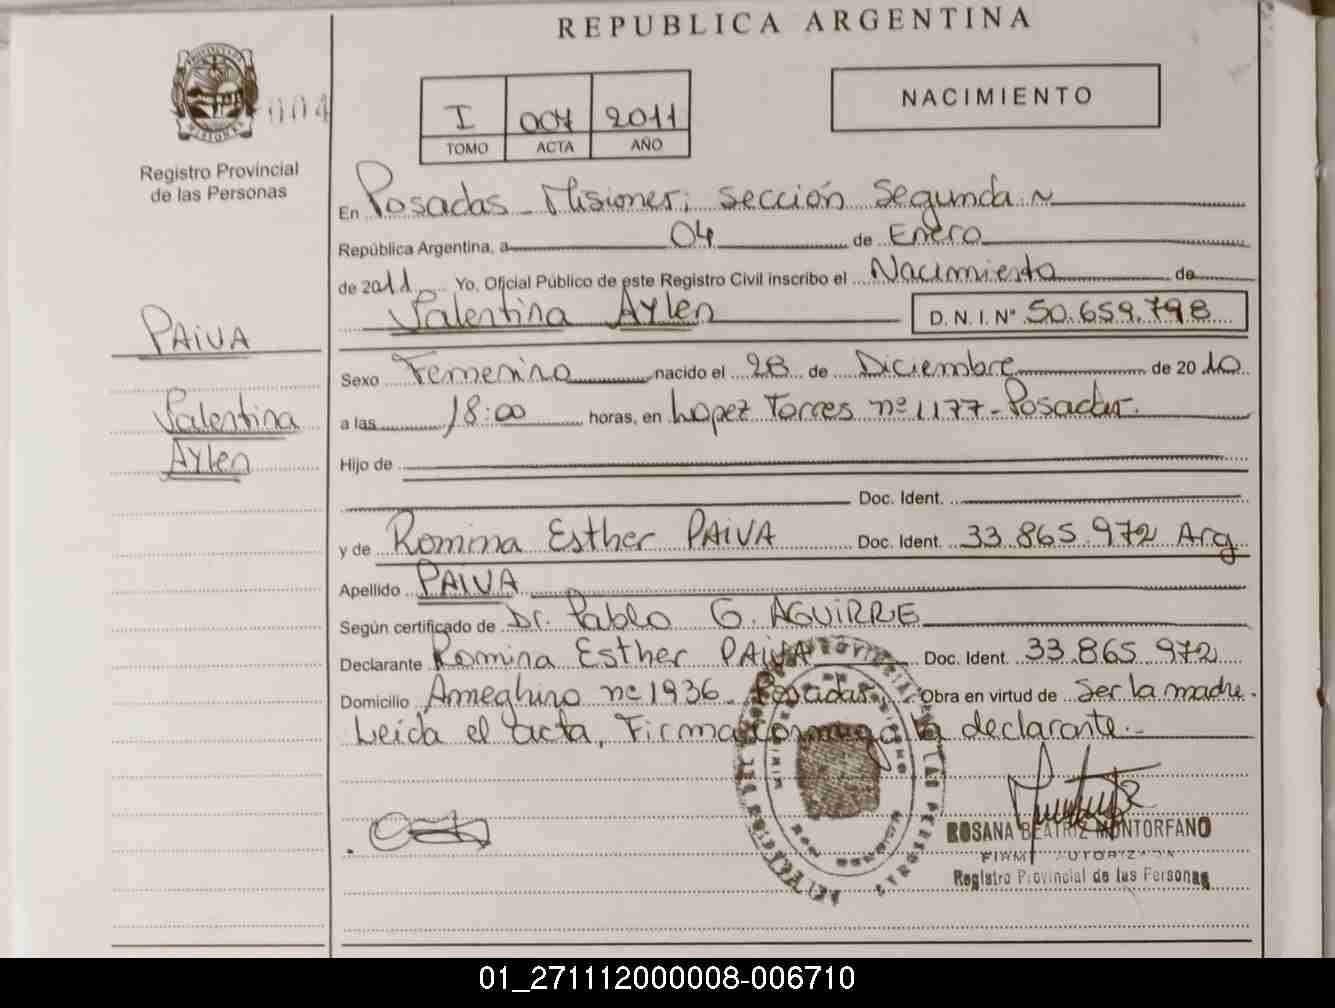 REPUBLICA ARGENTINA
004
I 004 2011
TOMO ACTA AÑO
NACIMIENTO
Registro Provincial
de las Personas
En Posadas - Misiones; sección Segunda
República Argentina, a 04 de Enero
de 2011 Yo, Oficial Público de este Registro Civil inscribo el Nacimiento de
Valentina Aylen D.N.I. Nº 50.659.798
PAIVA
Valentina
Aylen
Sexo Femenino nacido el 28 de Diciembre de 2010
a las 18:00 horas, en Lopez Torres nº 1177 - Posadas.
Hijo de
Doc. Ident.
y de Romina Esther PAIVA Doc. Ident. 33.865.972 Arg
Apellido PAIVA
Según certificado de Dr. Pablo G. AGUIRRE
Declarante Romina Esther PAIVA Doc. Ident. 33.865.972
Domicilio Ameghino nº 1936 Posadas Obra en virtud de Ser la madre.
Leida el acta, Firma conmigo la declarante.-
ROSANA BEATRIZ MONTORFANO
FIRMA AUTORIZADA
Registro Provincial de las Personas
01_271112000008-006710